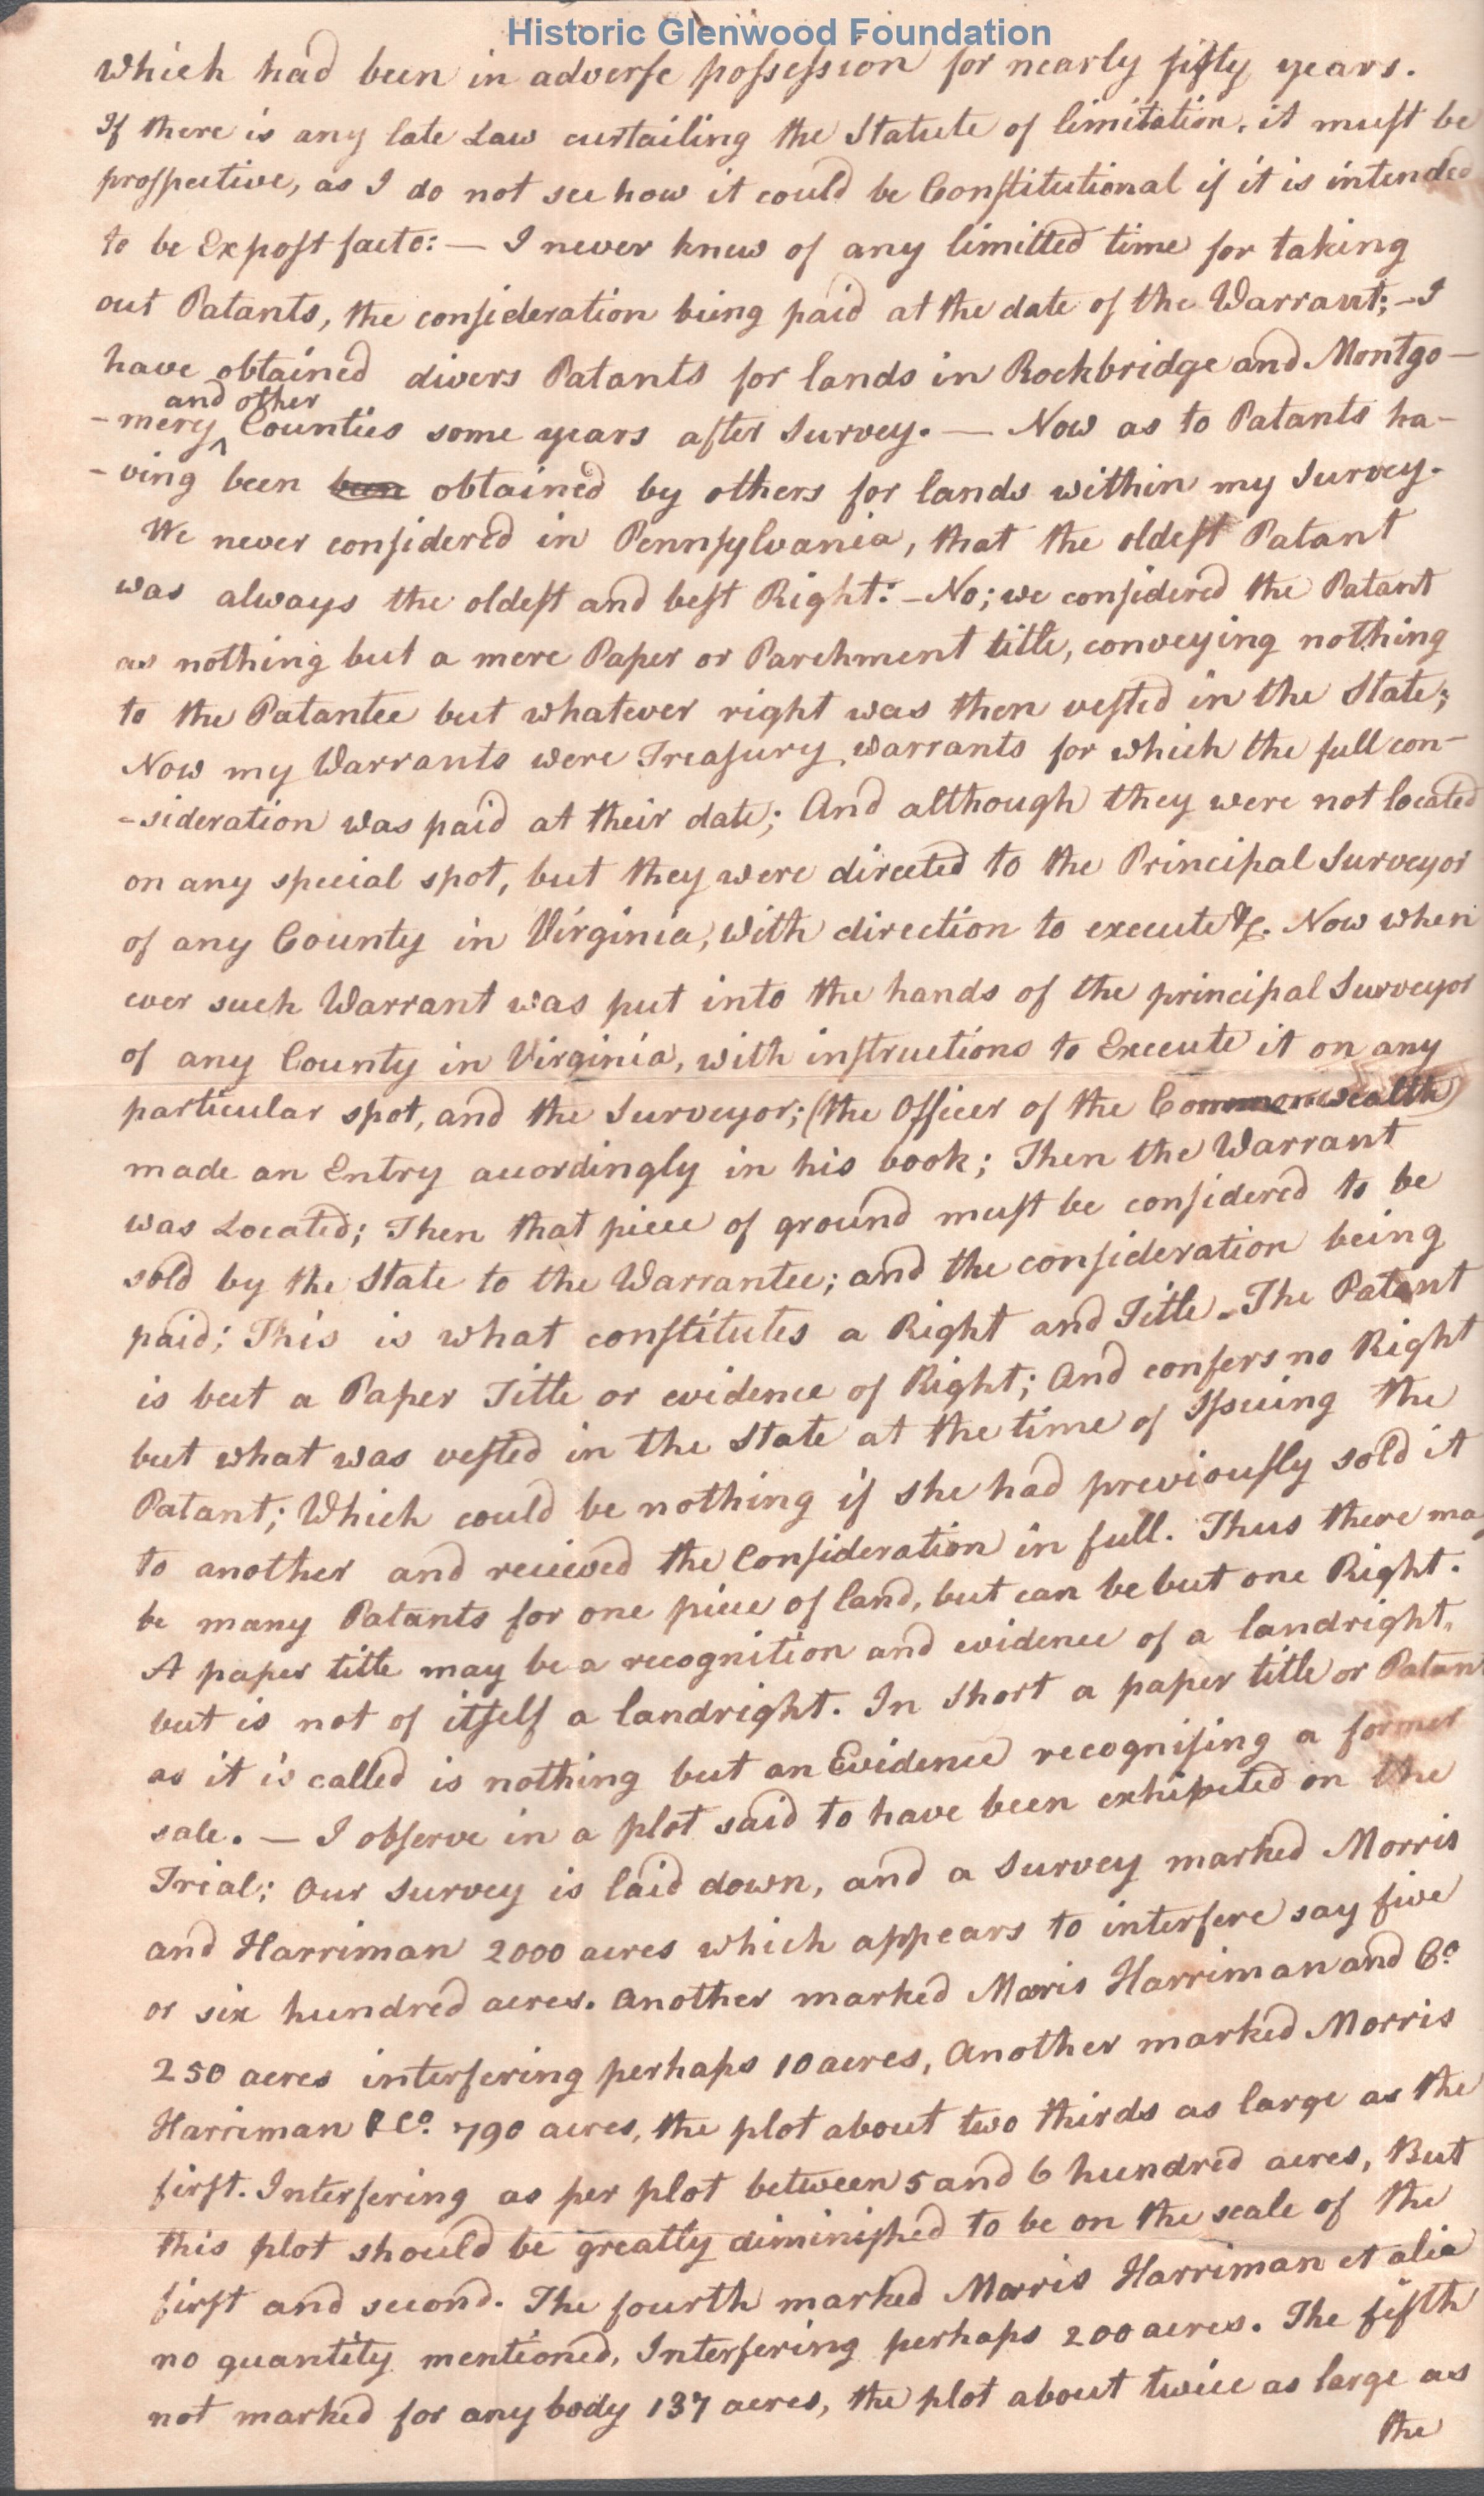 Historic Glenwood Foundation
which had been in adverse possession for nearly fifty years.
If there is any late Law curtailing the Statute of limitation, it must be
prospective, as I do not see how it could be Constitutional if it is intended
to be Expost facto:— I never knew of any limitted time for taking
out Patants, the consideration being paid at the date of the Warrant;—I
have obtained divers Patants for lands in Rockbridge and Montgo—
and other
-mery ^ Counties some years after Survey.— Now as to Patants ha-
-ving been been obtained by others for lands within my Survey.
We never considered in Pennsylvania, that the oldest Patant
was always the oldest and best Right:—No; we considered the Patant
as nothing but a mere Paper or Parchment title, conveying nothing
to the Patantee but whatever right was then vested in the State;
Now my Warrants were Treasury warrants for which the full con-
-sideration was paid at their date; And although they were not located
on any special spot, but they were directed to the Principal Surveyor
of any County in Virginia, with direction to execute &c. Now when
ever such Warrant was put into the hands of the principal Surveyor
of any County in Virginia, with instructions to Execute it on any
particular spot, and the Surveyor; (the Officer of the Commonwealth)
made an Entry accordingly in his book; Then the Warrant
was Located; Then that piece of ground must be considered to be
sold by the State to the Warrantee; and the consideration being
paid; This is what constitutes a Right and Title—The Patant
is but a Paper Title or evidence of Right; And confers no Right
but what was vested in the State at the time of Issuing the
Patant; Which could be nothing if she had previously sold it
to another and recieved the Consideration in full. Thus there may
be many Patants for one piece of land, but can be but one Right.
A paper title may be a recognition and evidence of a landright,
but is not of itself a landright. In short a paper title or Patant
as it is called is nothing but an Evidence recognising a former
sale.— I observe in a plot said to have been exhibited on the
Trial; Our Survey is laid down, and a Survey marked Morris
and Harriman 2000 acres which appears to interfere say five
or six hundred acres. Another marked Morris Harriman and Co
250 acres interfering perhaps 10 acres, Another marked Morris
Harriman & Co. 790 acres, the plot about two thirds as large as the
first. Interfering as per plot between 5 and 6 hundred acres, But
this plot should be greatly diminished to be on the scale of the
first and second. The fourth marked Morris Harriman et alia
no quantity mentioned, Interfering perhaps 200 acres. The fifth
not marked for any body 137 acres, the plot about twice as large as
the